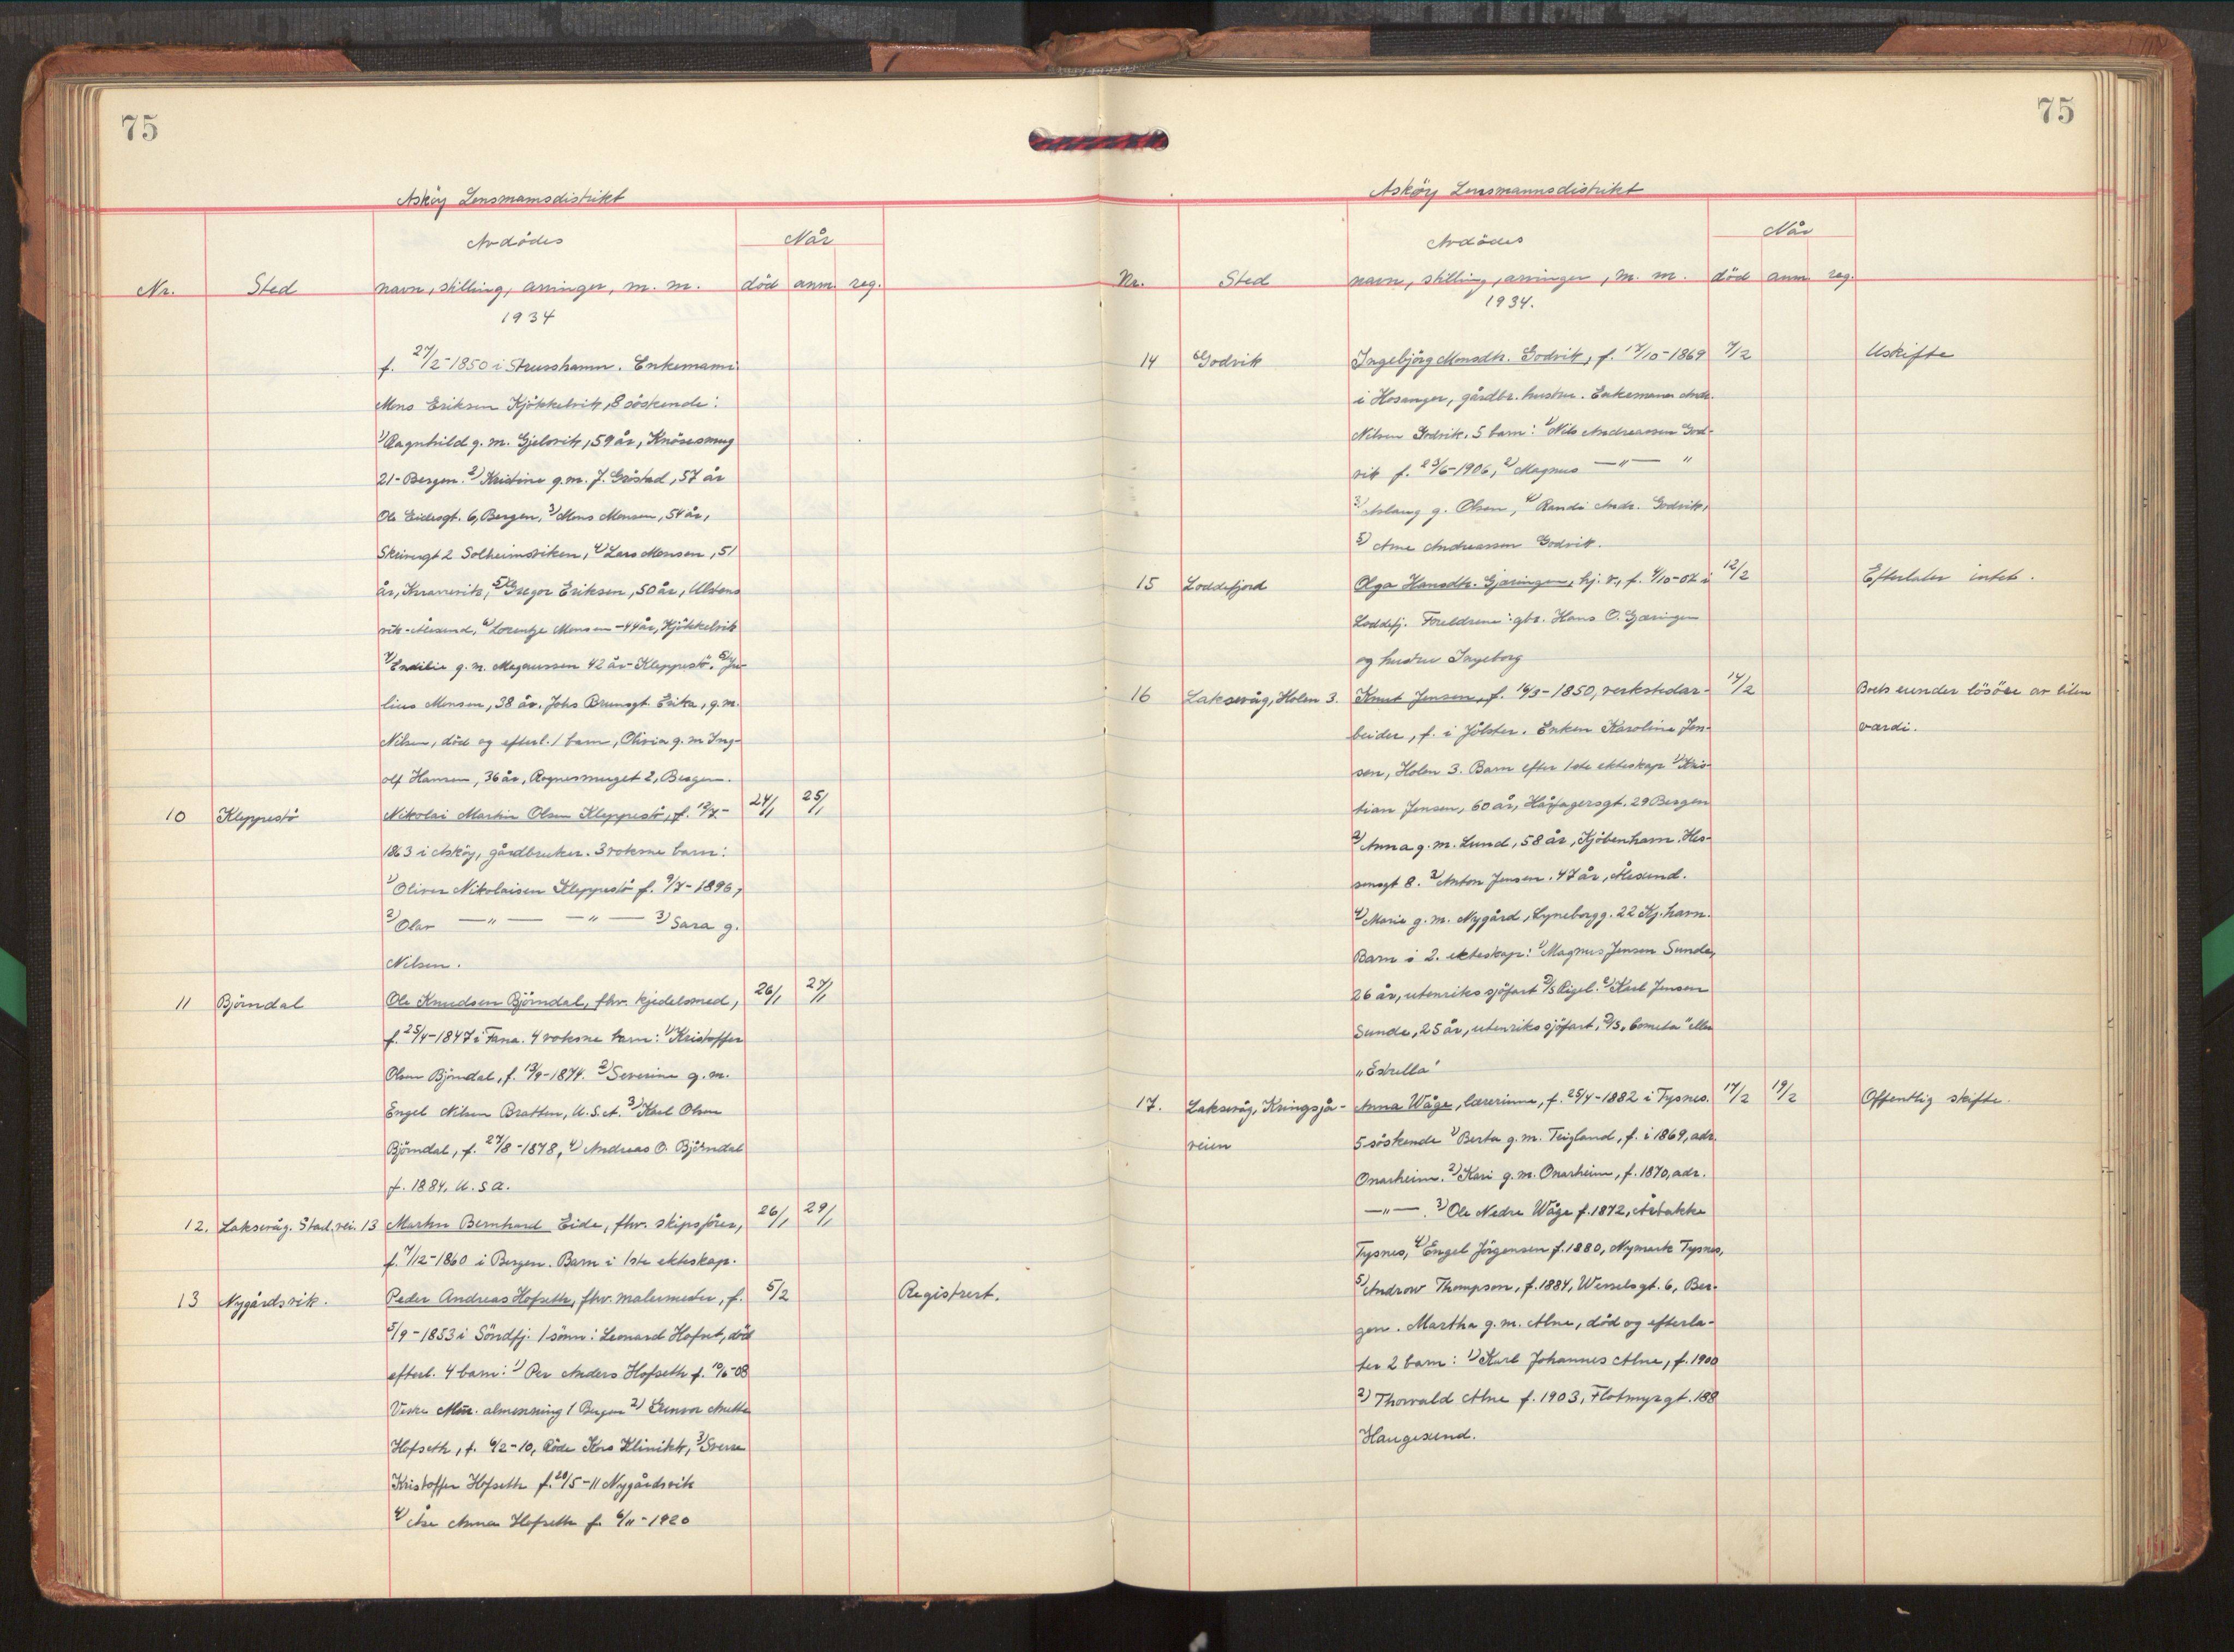 75
Askøy Lensmannsdistrikt
Avdødes
Når
Nr. Sted navn, stilling, arvinger, m. m. død anm. reg.
1934
f. 27/2-1850 i Strusshamn. Enkemann:
Mons Eriksen Kjøkkelvik, 8 söskende:
1) Ragnhild g. m. Gjelsvik, 59 år, Knösesmug
21-Bergen. 2) Kristine g. m. J. Gröstad, 57 år
Ole Eidesgt. 6, Bergen, 3) Mons Monsen, 54 år,
2 Solheimsviken, 4) Lars Monsen, 51
år, 5) Gregor Eriksen, 50 år, Ulstens
vik-Ålesund, 6) Lorentze Monsen - 44 år, Kjøkkelvik
7) Emilie g. m. Magnussen 42 år - Kleppestö. 8) Ju-
lius Monsen, 38 år, Johs Brunsgt. Erika, g. m.
Nilsen, död og efterl. 1 barn, Olivia g. m. Ing-
olf Hansen, 36 år, Rognesmuget 2, Bergen.
10 Kleppestö Nikolai Martin Olsen Kleppestö, f. 12/7- 24/1 25/1
1863 i Askøy, gårdbruker. 3 voksne barn:
1) Oliver Nikolaisen Kleppestö f. 9/7-1896,
2) Olav —"— —"— 3) Sara g.
Nilsen.
11 Björndal Ole Knudsen Björndal, fhv. kjedelsmed, 26/1 27/1
f. 25/4-1847 i Fana. 4 voksne barn: 1) Kristoffer
Olsen Björndal, f. 13/9-1874. 2) Severine g. m.
Engel Nilsen Bratten, U.S.A. 3) Karl Olsen
Björndal, f. 27/8-1878, 4) Andreas O. Björndal
f. 1884, U.S.A.
12. Laksevåg. Stad.vei. 13 Martin Bernhard Eide, fhv. skipsförer, 26/1 29/1
f. 7/12-1860 i Bergen. Barn i 1ste ekteskap.
13 Nygårdsvik. Peder Andreas Hofseth, fhv. malermester, f. 5/2 Registrert.
5/9-1853 i Söndfj. 1 sönn: Leonard Hofset, död
efterl. 4 barn: 1) Per Anders Hofseth f. 10/6-08
Vestre Mur. almenning 1 Bergen 2) Gunvor Anette
Hofseth, f. 6/2-10, Röde Kors Klinikk, 3) Sverre
Kristoffer Hofseth f. 20/5-11 Nygårdsvik
4) Åse Anna Hofseth f. 6/11-1920
75
Askøy Lensmannsdistrikt
Avdödes
Når
Nr. Sted navn, stilling, arvinger, m. m. död anm. reg.
1934.
14 Godvik Ingebjörg Monsdtr. Godvik, f. 17/10-1869 7/2 Uskifte
i Hosanger, gårdbr. hustru. Enkemann Andr.
Nilsen Godvik. 5 barn: 1) Nils Andreassen God-
vik f. 23/6-1906, 2) Magnus —"— "
3) Aslaug g. Olsen, 4) Randi Andr. Godvik,
5) Arne Andreassen Godvik.
15 Loddefjord Olga Hansdtr. Gjæringen, hj. v., f. 4/10-07 i 12/2 Efterlater intet.
Loddefj. Foreldrene: gbr. Hans O. Gjæringen
og hustru Ingeborg
16 Laksevåg, Holen 3. Knut Jensen, f. 16/3-1850, verkstedar- 14/2 Boets eiendeler lösöre av liten
beider, f. i Jölster. Enken Karoline Jen- værdi.
sen, Holen 3. Barn efter 1ste ekteskap 1) Kris-
tian Jensen, 60 år, Hårfagersgt. 29 Bergen
2) Anna g. m. Lund, 58 år, Kjöbenhavn. Hes-
sensgt 8. 3) Anton Jensen. 47 år, Ålesund.
4) Marie g. m. Nygård, Lyneborgg. 22 Kj. havn.
Barn i 2. ekteskap: 1) Magnus Jensen Sunde,
26 år, utenriks sjöfart D/S Rigel. 2) Karl Jensen
Sunde, 25 år, utenriks sjöfart, D/S. "Cometa" eller
"Estrella"
17. Laksevåg, Kringsjå- Anna Wåge, lærerinne, f. 25/4-1882 i Tysnes. 17/2 19/2 Offentlig skifte.
veien 5 söskende 1) Berta g. m. Teigland, f. i 1869, adr.
Onarheim. 2) Kari g. m. Onarheim, f. 1870, adr.
—"—. 3) Ole Nedre Wåge f. 1872, Årbakke
Tysnes, 4) Engel Jörgensen f. 1880, Nymark Tysnes,
5) Androw Thompson, f. 1884, Wesselsgt. 6, Ber-
gen. Martha g. m. Alne, död og efterla-
ter 2 barn: 1) Karl Johannes Alne, f. 1900
2) Thorvald Alne f. 1903, Flotmyrgt. 188
Haugesund.